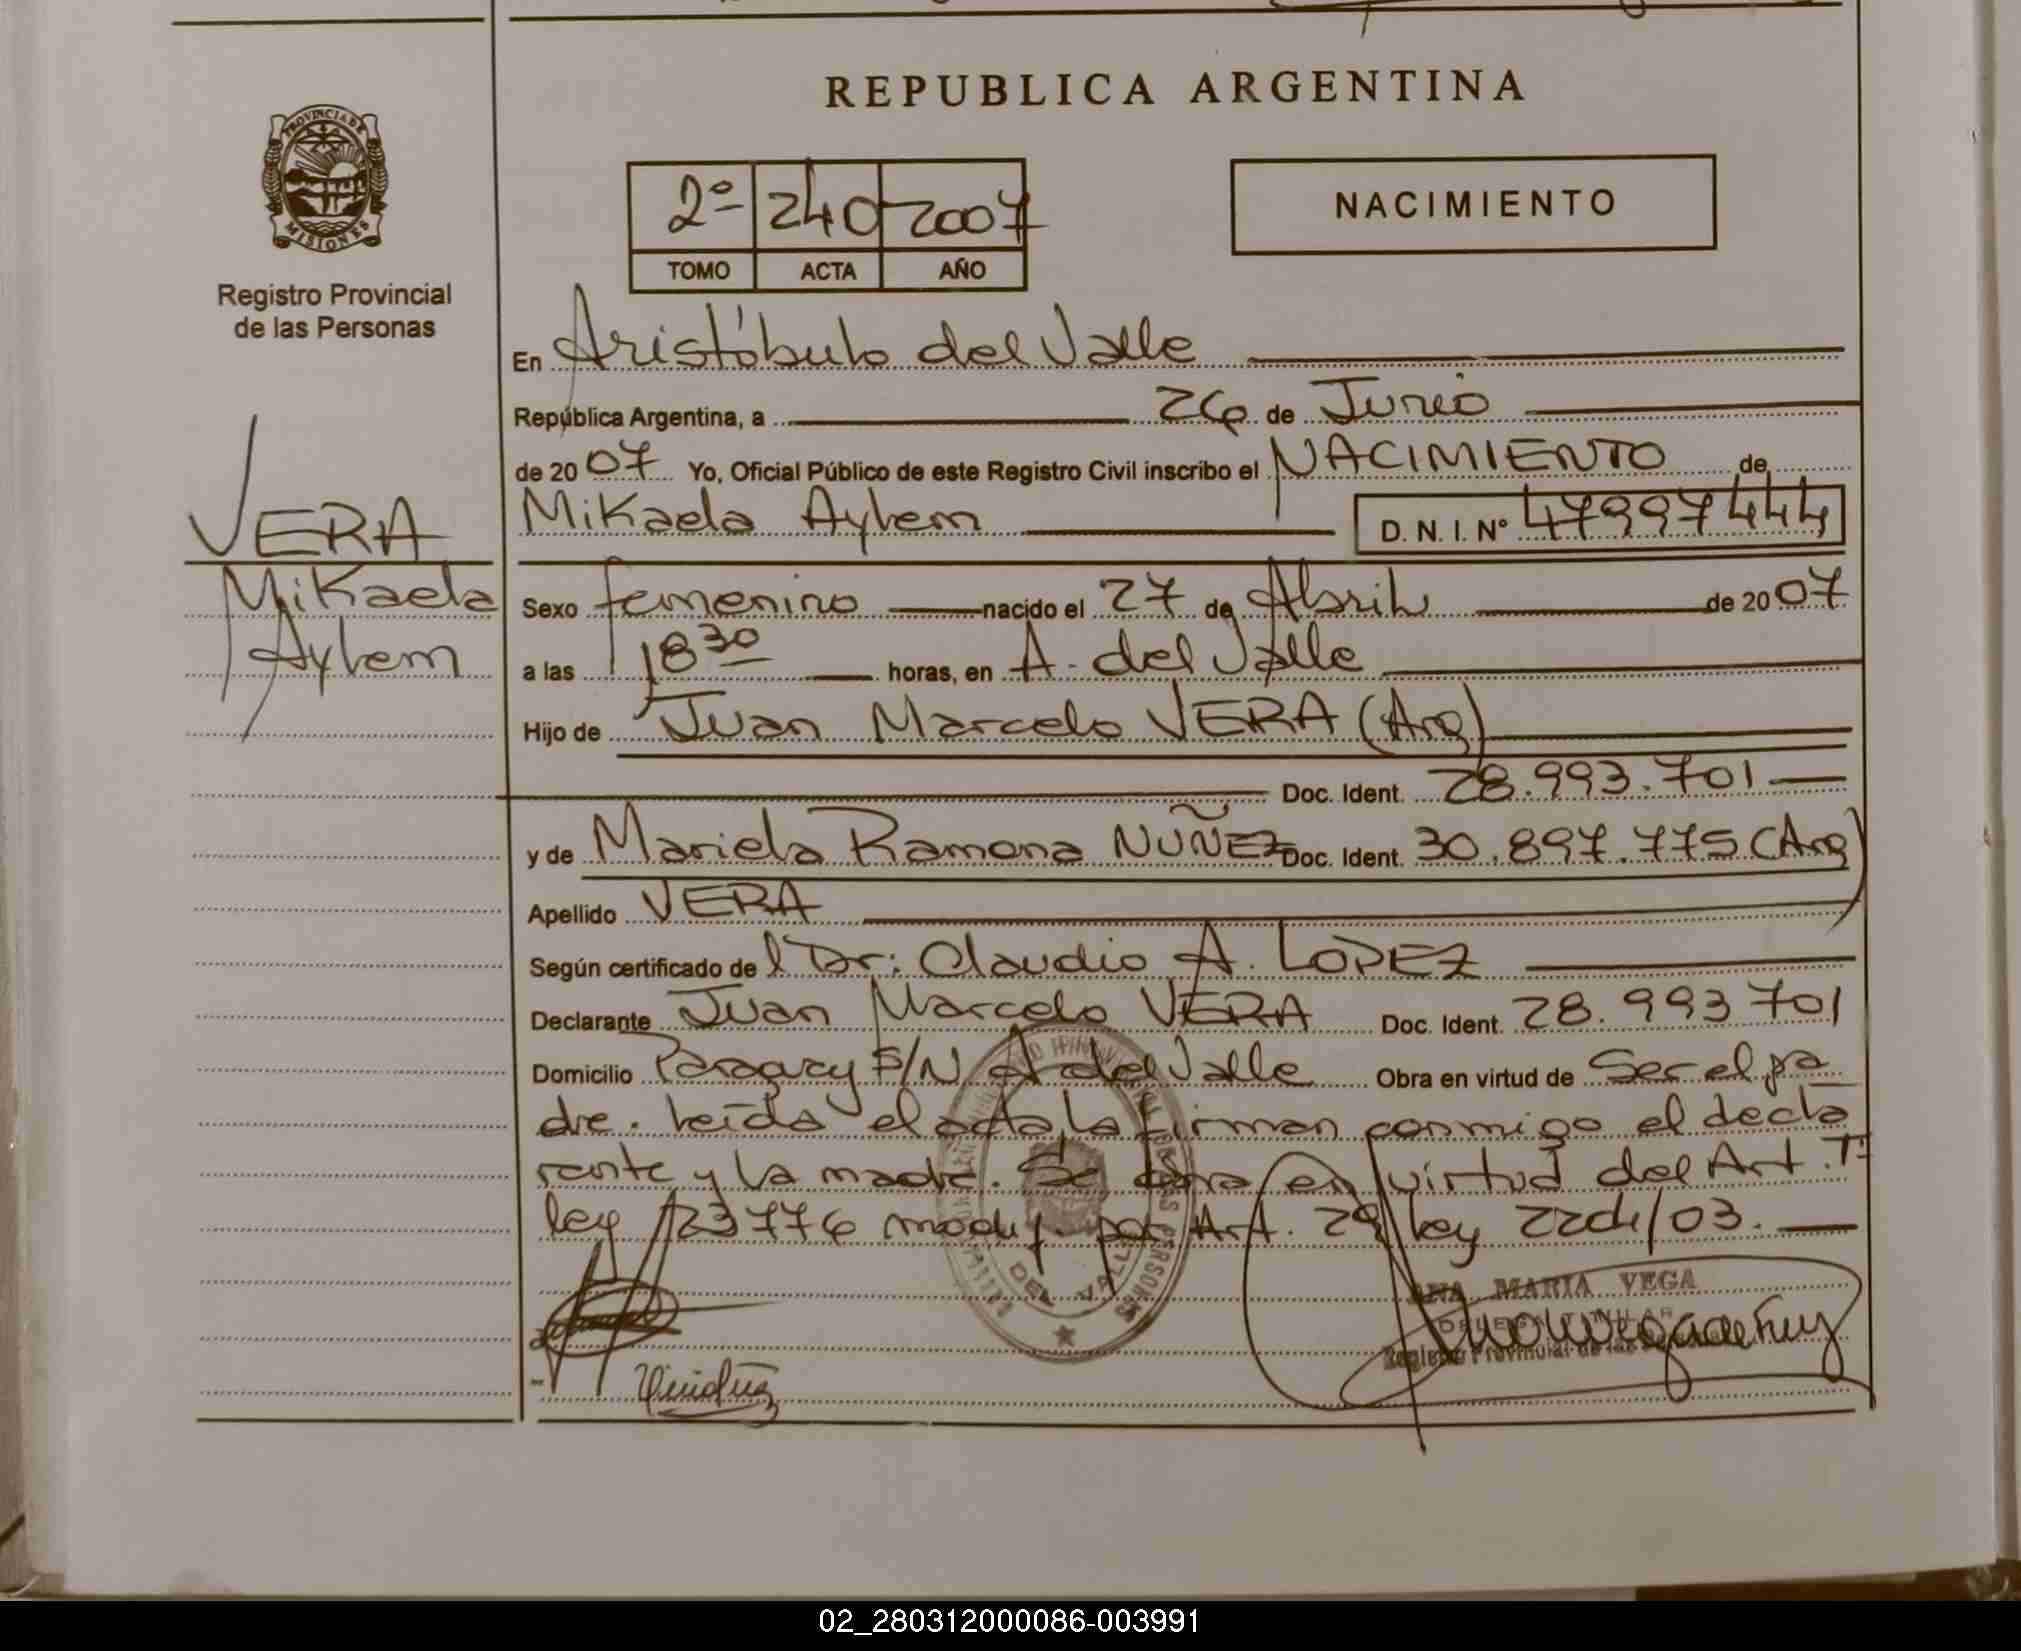 REPUBLICA ARGENTINA
PROVINCIA DE
MISIONES
Registro Provincial
de las Personas
2º 240 2007
TOMO ACTA AÑO
NACIMIENTO
En Aristóbulo del Valle
República Argentina, a 26 de Junio
de 2007 Yo, Oficial Público de este Registro Civil inscribo el NACIMIENTO de
Mikaela Aylem D. N. I. Nº 47997444
VERA
Mikaela
Aylem
Sexo femenino nacido el 27 de Abril de 2007
a las 18 30 horas, en A. del Valle
Hijo de Juan Marcelo VERA (Arg)
Doc. Ident. 28.993.701
y de Mariela Ramona NUÑEZ Doc. Ident. 30.897.775 (Arg)
Apellido VERA
Según certificado de l Dr: Claudio A. LOPEZ
Declarante Juan Marcelo VERA Doc. Ident. 28.993 701
Domicilio Paraguay S/N A del Valle Obra en virtud de Ser el pa
dre. leída el acta la firman conmigo el decla
rante y la madre. Se obra en virtud del Art.
ley 23776 modif. por Art. 29 ley
DEL VALLE
ANA MARIA VEGA
DELEGADA TITULAR
Registro Provincial de las
02_280312000086-003991